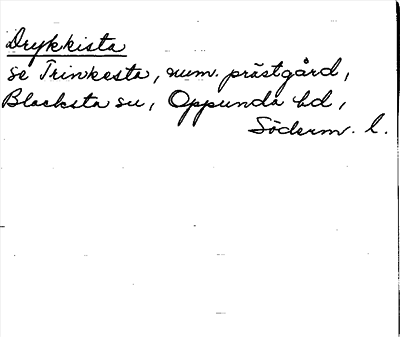 Drykkista
se Trinkesta, num. prästgård,
Blacksta sn, Oppunda hd,
Söderm. l.